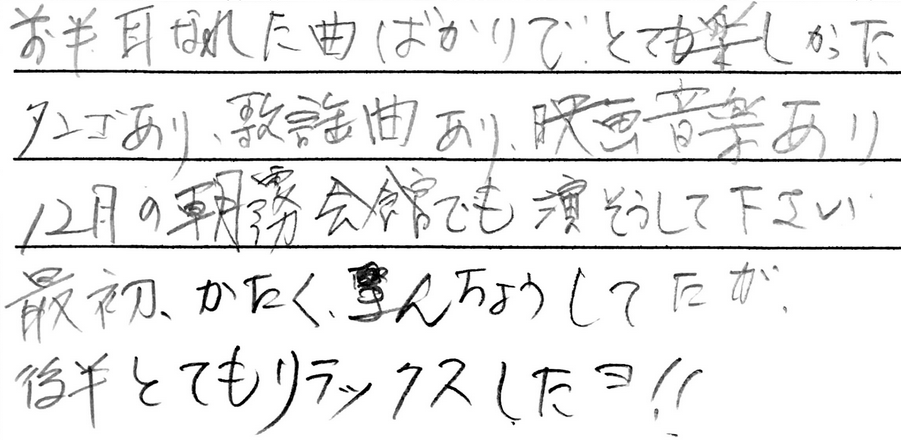 お半耳なれた曲ばかりで、とても楽しかった
タンゴあり、歌謡曲あり、映画音楽あり
12月の朝霧会館でも演そうして下さい
最初、かたく、きんちょうしてたが、
後半とてもリラックスしたヨ!!